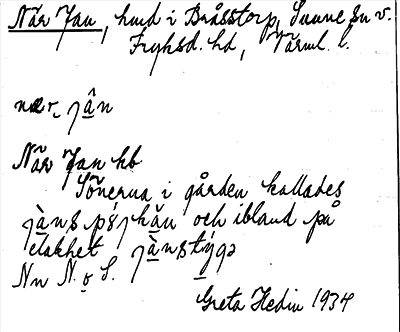 När Jan, hmd i Bråsstorp, Sunne sn v.
Fryksd. hd, Värml. l.
nær ȷân
När Jan hb
Sönerna i gården kallades
och ibland på
elakhet
Nn N. o S.
Greta Hedin 1934